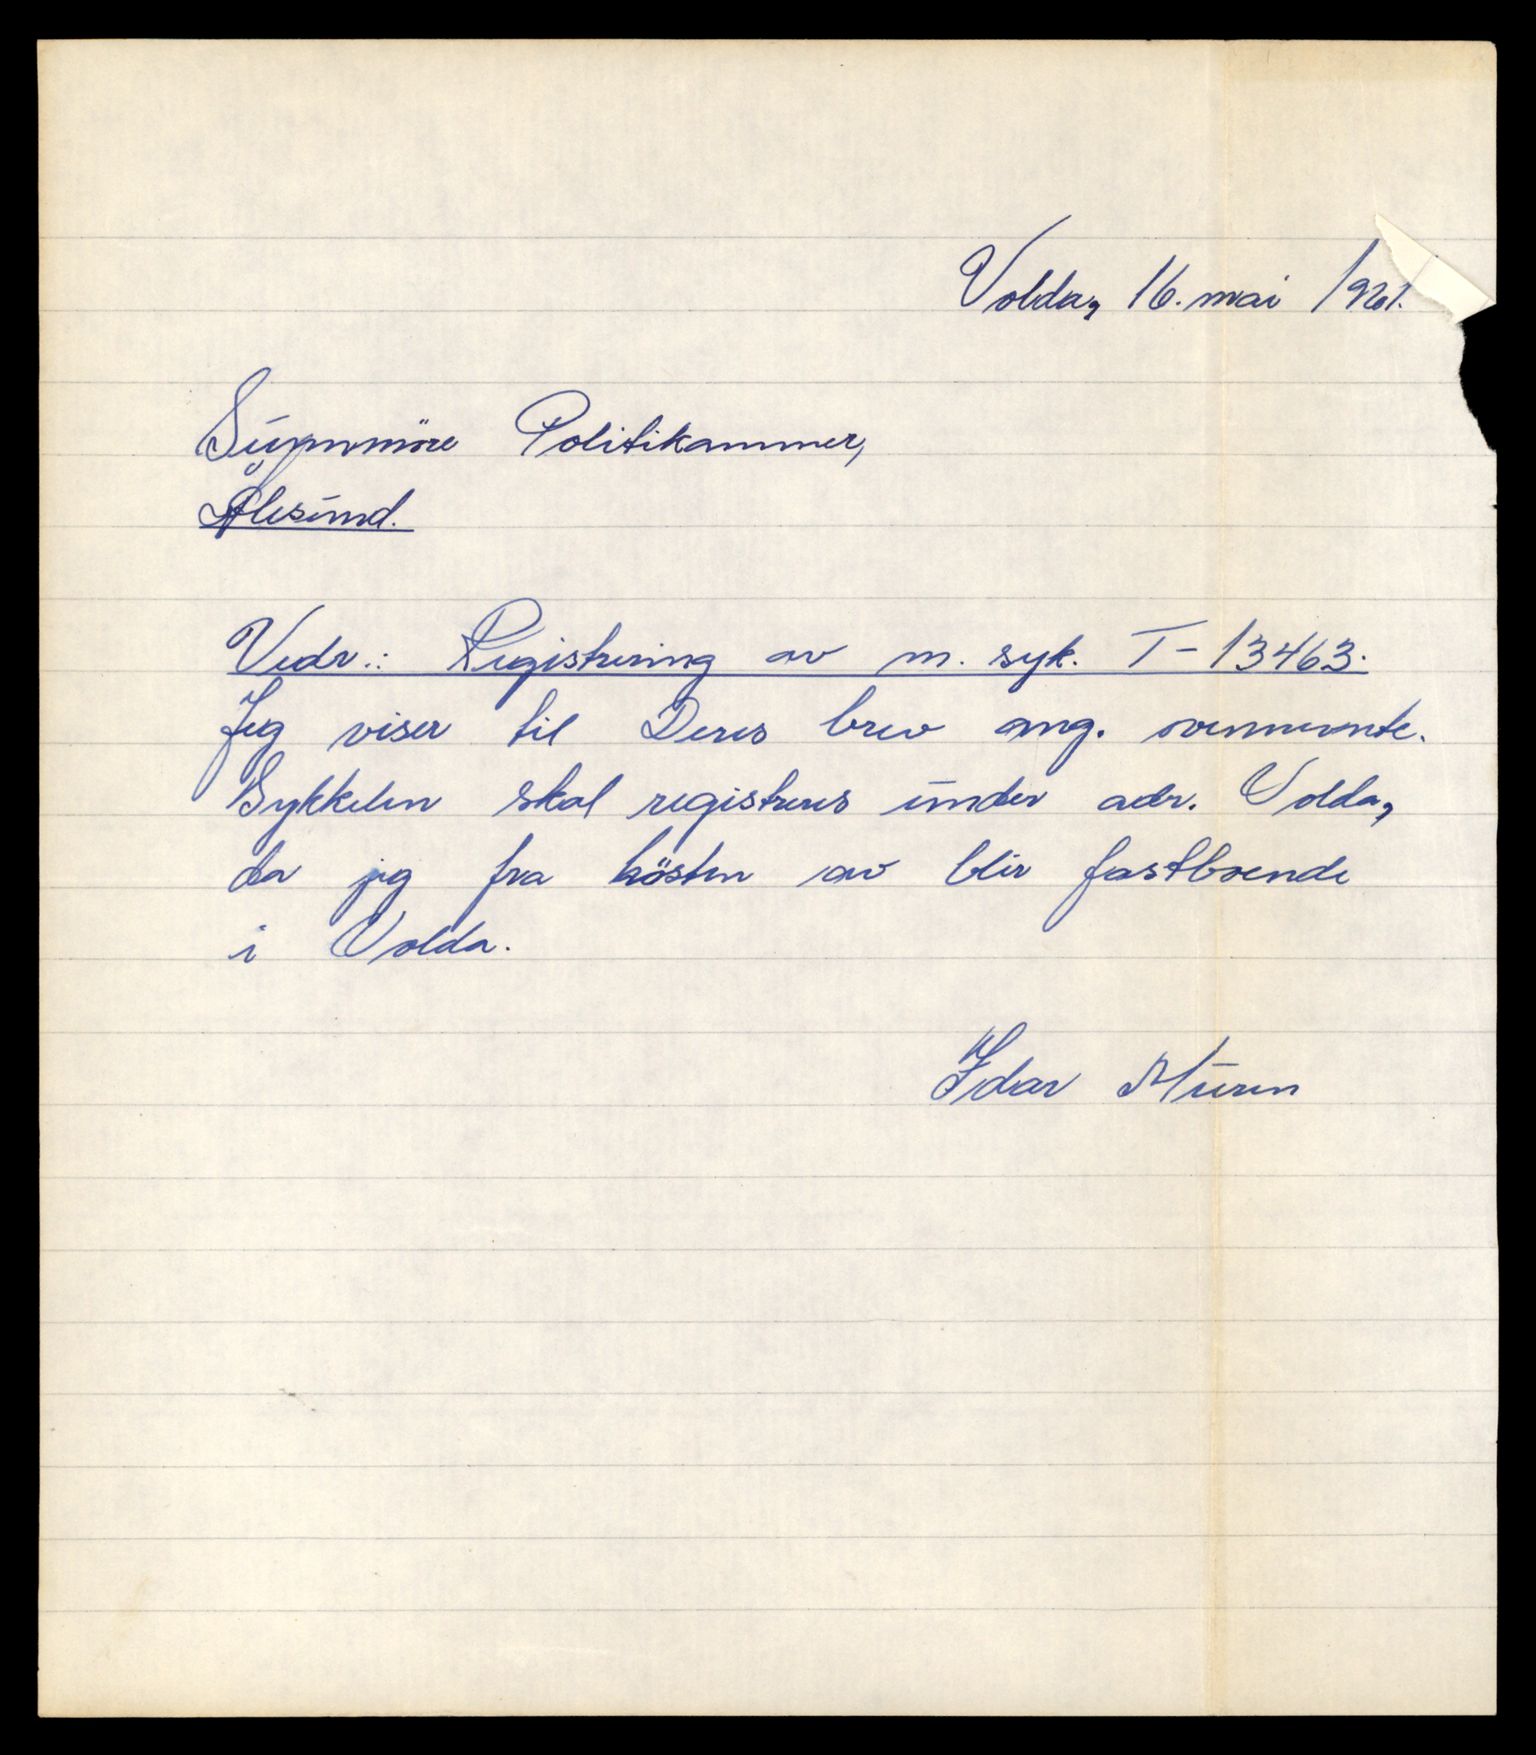 Volda, 16. mai 1961.
Sunnmöre Politikammer,
Ålesund.
Vedr.: Registrering av m. syk. T-13463.
Jeg viser til Deres brev ang. ovennevnte.
Sykkelen skal registreres under adr. Volda,
da jeg fra hösten av blir fastboende
i Volda.
Idar Muren